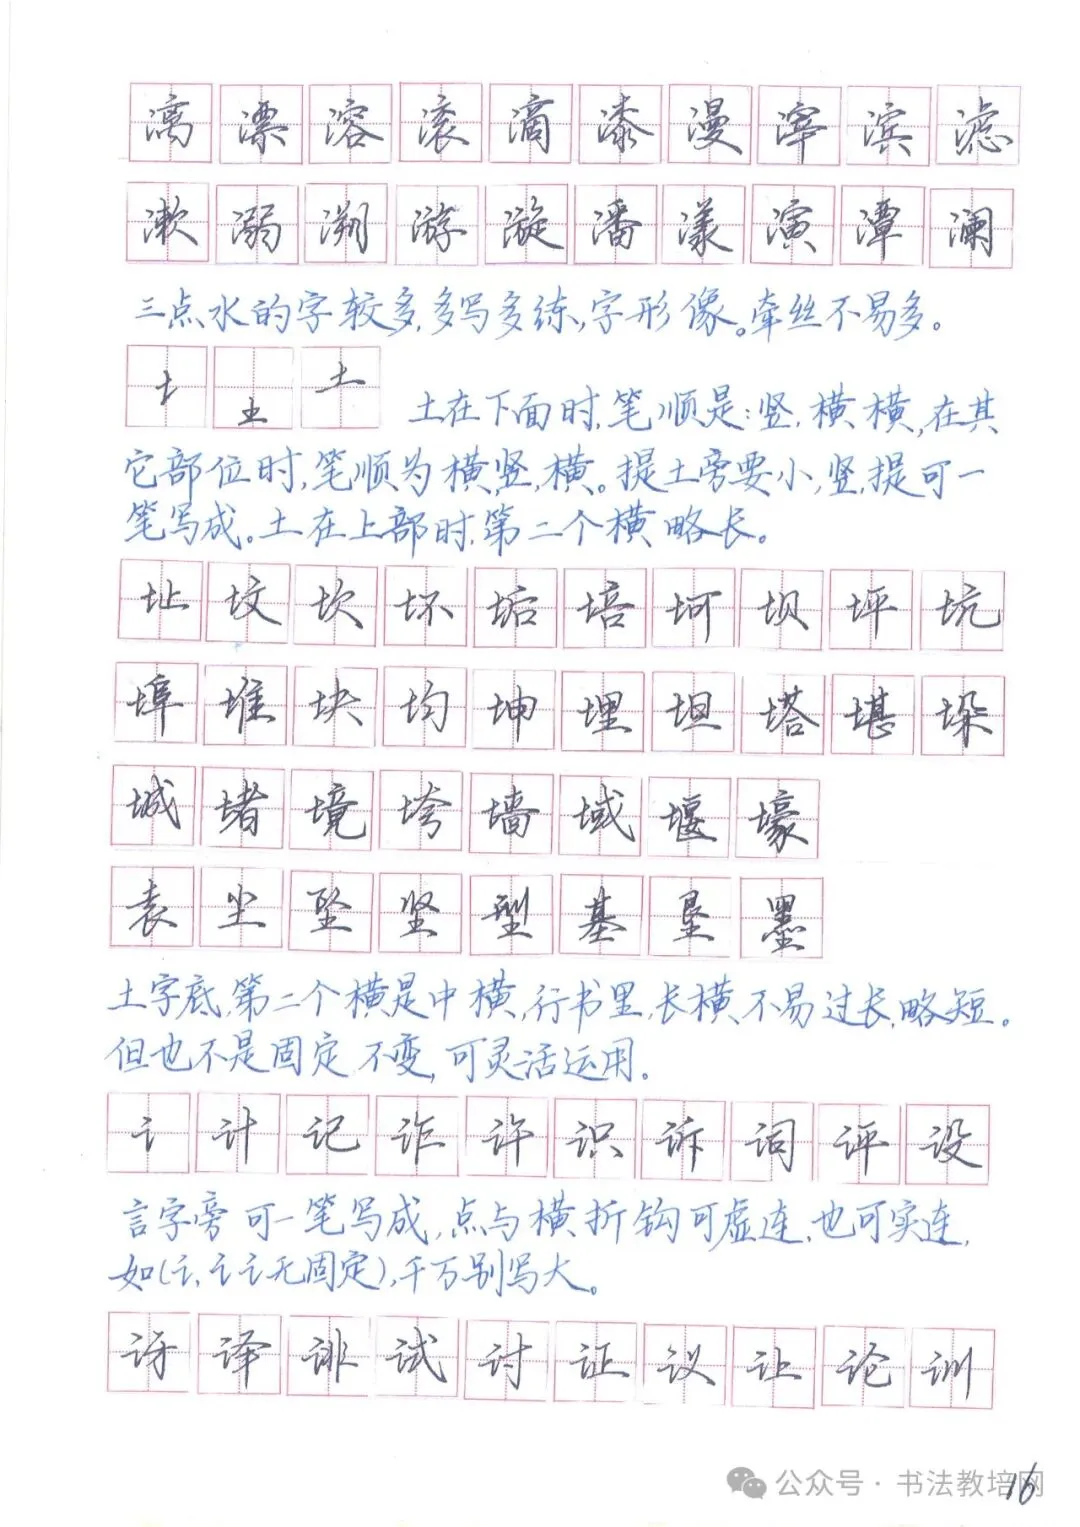 漓漂溶滚滴漆漫滓滨滤
漱溺溯游漩潘漾演潭澜
三点水的字较多,多写多练,字形像。牵丝不易多。
土 土 土
土在下面时,笔顺是:竖,横横,在其
它部位时,笔顺为横,竖,横。提土旁要小,竖,提可一
笔写成。土在上部时,第二个横略长。
址坟坎坏垢培坷坝坪坑
埠堆块均坤埋坦塔堪垛
城堵境垮墙域堰壕
袁尘坠坚型基垦墨
土字底,第二个横是中横,行书里,长横不易过长,略短。
但也不是固定不变,可灵活运用。
讠计记诈许识诉词评设
言字旁可一笔写成,点与横折钩可虚连,也可实连,
如(讠,讠讠无固定),千万别写大。
讶译诽试讨证议让论训
公众号·书法教培网
16